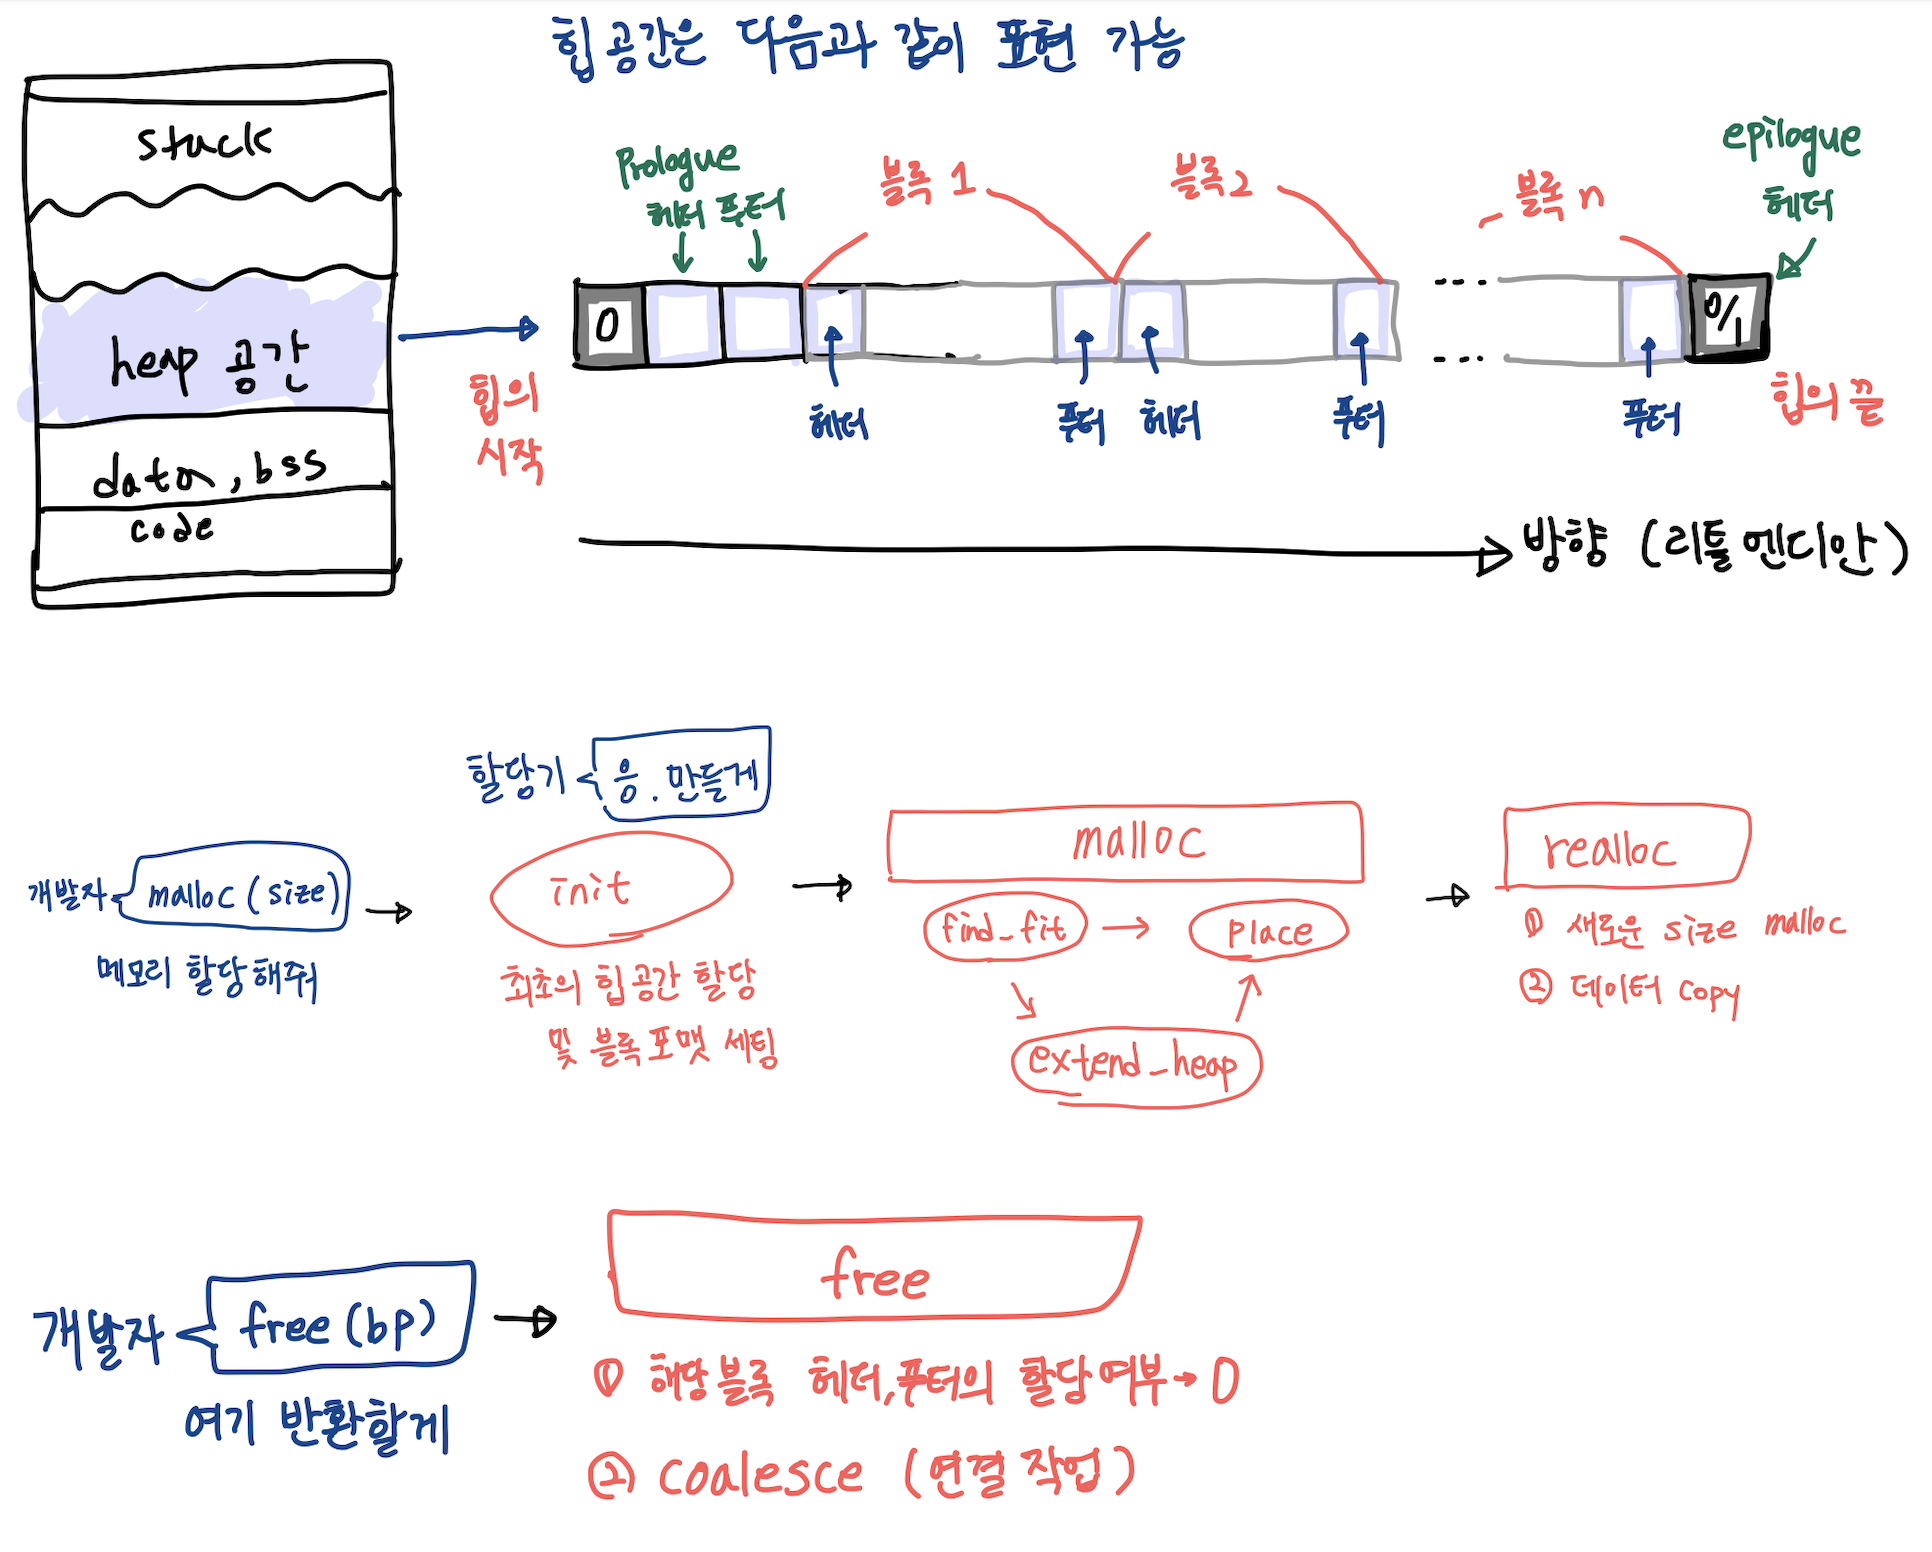 힙 공간은 다음과 같이 표현 가능
stack
heap 공간
data, bss
code
힙의
시작
Prologue
헤더 푸터
블록 1
블록2
블록 n
epilogue
헤더
0
0/1
헤더
푸터
헤더
푸터
푸터
힙의 끝
방향 (리틀 엔디안)
할당기
응. 만들게
개발자
malloc (size)
메모리 할당해줘
init
최초의 힙공간 할당
및 블록 포맷 세팅
malloc
find_fit
place
extend_heap
realloc
① 새로운 size malloc
② 데이터 copy
개발자
free (bp)
여기 반환할게
free
① 해당 블록 헤더,푸터의 할당여부→ 0
② coalesce (연결 작업)